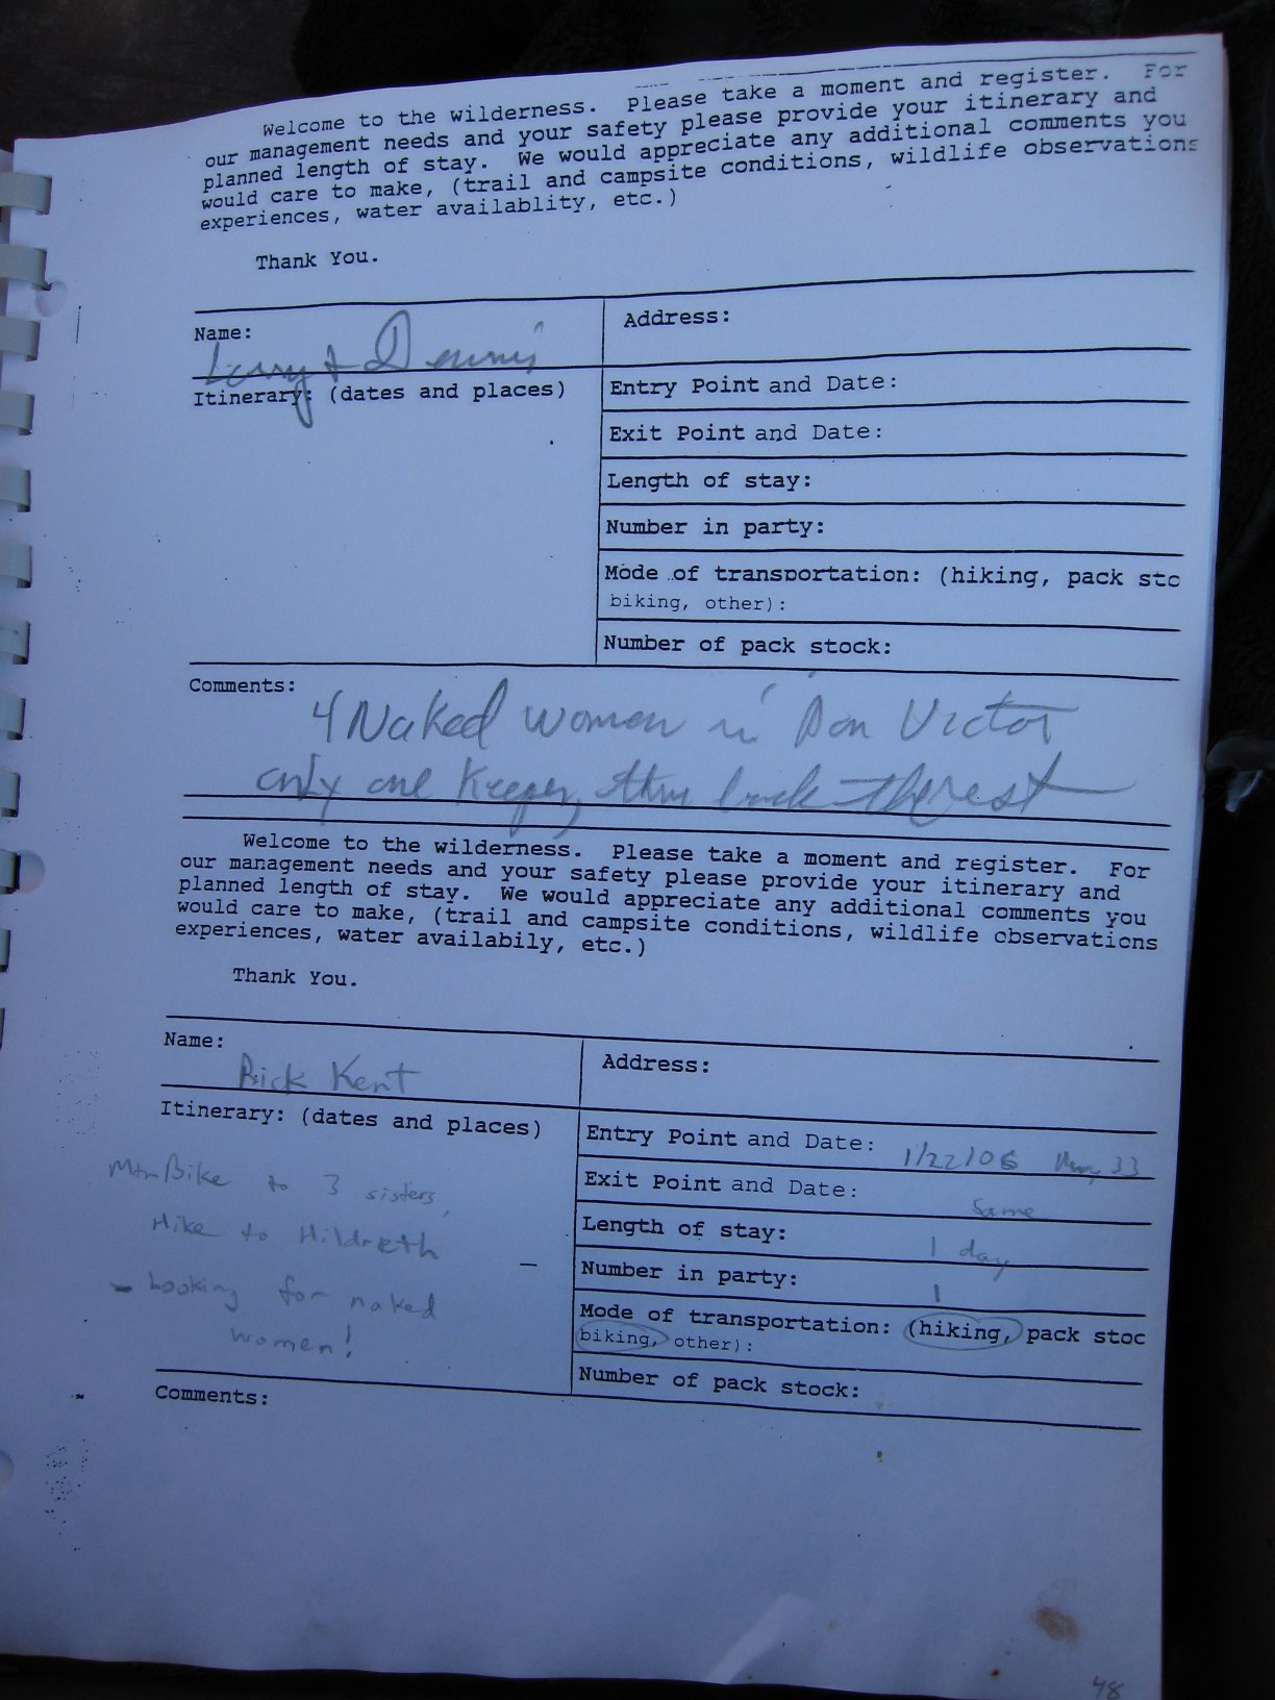 Welcome to the wilderness. Please take a moment and register. For
our management needs and your safety please provide your itinerary and
planned length of stay. We would appreciate any additional comments you
would care to make, (trail and campsite conditions, wildlife observations
experiences, water availablity, etc.)
Thank You.
Name: Larry & Dennis
Address:
Itinerary: (dates and places)
Entry Point and Date:
Exit Point and Date:
Length of stay:
Number in party:
Mode of transportation: (hiking, pack stc
biking, other):
Number of pack stock:
Comments: 4 Naked women in Don Victor
only one keeper, threw back the rest
Welcome to the wilderness. Please take a moment and register. For
our management needs and your safety please provide your itinerary and
planned length of stay. We would appreciate any additional comments you
would care to make, (trail and campsite conditions, wildlife observations
experiences, water availabily, etc.)
Thank You.
Name: Rick Kent
Address:
Itinerary: (dates and places)
Mtn Bike to 3 sisters,
Hike to Hildreth
- Looking for naked
women!
Entry Point and Date: 1/22/06 Hwy 33
Exit Point and Date: Same
Length of stay: 1 day
Number in party: 1
Mode of transportation: (hiking, pack stoc
biking, other):
Number of pack stock:
Comments:
48